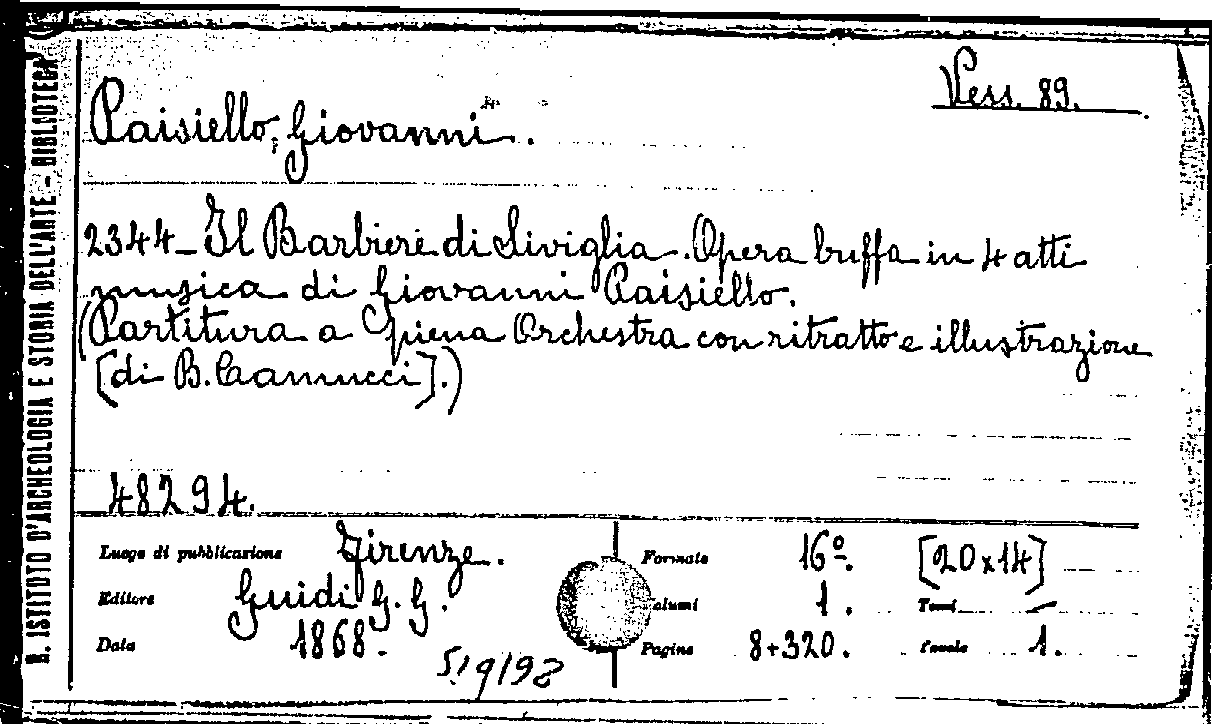 R. ISTITUTO D'ARCHEOLOGIA E STORIA DELL'ARTE - BIBLIOTECA
Vess. 89.
Paisiello, Giovanni.
2344 - Il Barbiere di Siviglia. Opera buffa in 4 atti
musica di Giovanni Paisiello.
(Partitura a piena Orchestra con ritratto e illustrazione
[di B. Gamucci].)
48294.
Luogo di pubblicazione Firenze. Formato 16º. [20x14]
Editore Guidi G. G. 1. Tomi —
Data 1868. Pagine 8+320. Tavole 1.
519192